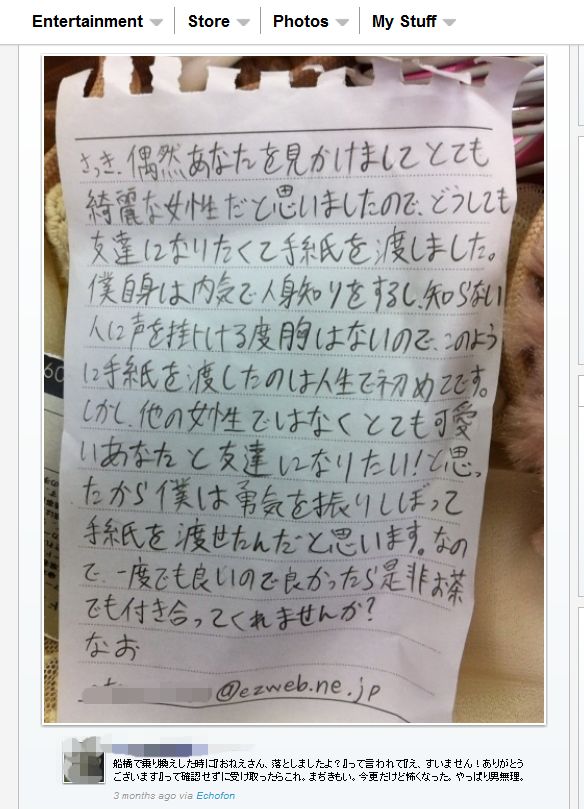 Entertainment Store Photos My Stuff
さっき、偶然あなたを見かけましてとても
綺麗な女性だと思いましたので、どうしても
友達になりたくて手紙を渡しました。
僕自身は内気で人身知りをするし、知らない
人に声を掛ける度胸はないので、このよう
に手紙を渡したのは人生で初めてです。
しかし、他の女性ではなくとても可愛
いあなたと友達になりたい!と思っ
たから僕は勇気を振りしぼって
手紙を渡せたんだと思います。なの
で、一度でも良いので良かったら是非お茶
でも付き合ってくれませんか?
なお
@ezweb.ne.jp
60
船橋で乗り換えした時に『おねえさん、落としましたよ?』って言われて『え、すいません!ありがとう
ございます』って確認せずに受け取ったらこれ。まぢきもい。今更だけど怖くなった。やっぱり男無理。
3 months ago via Echofon